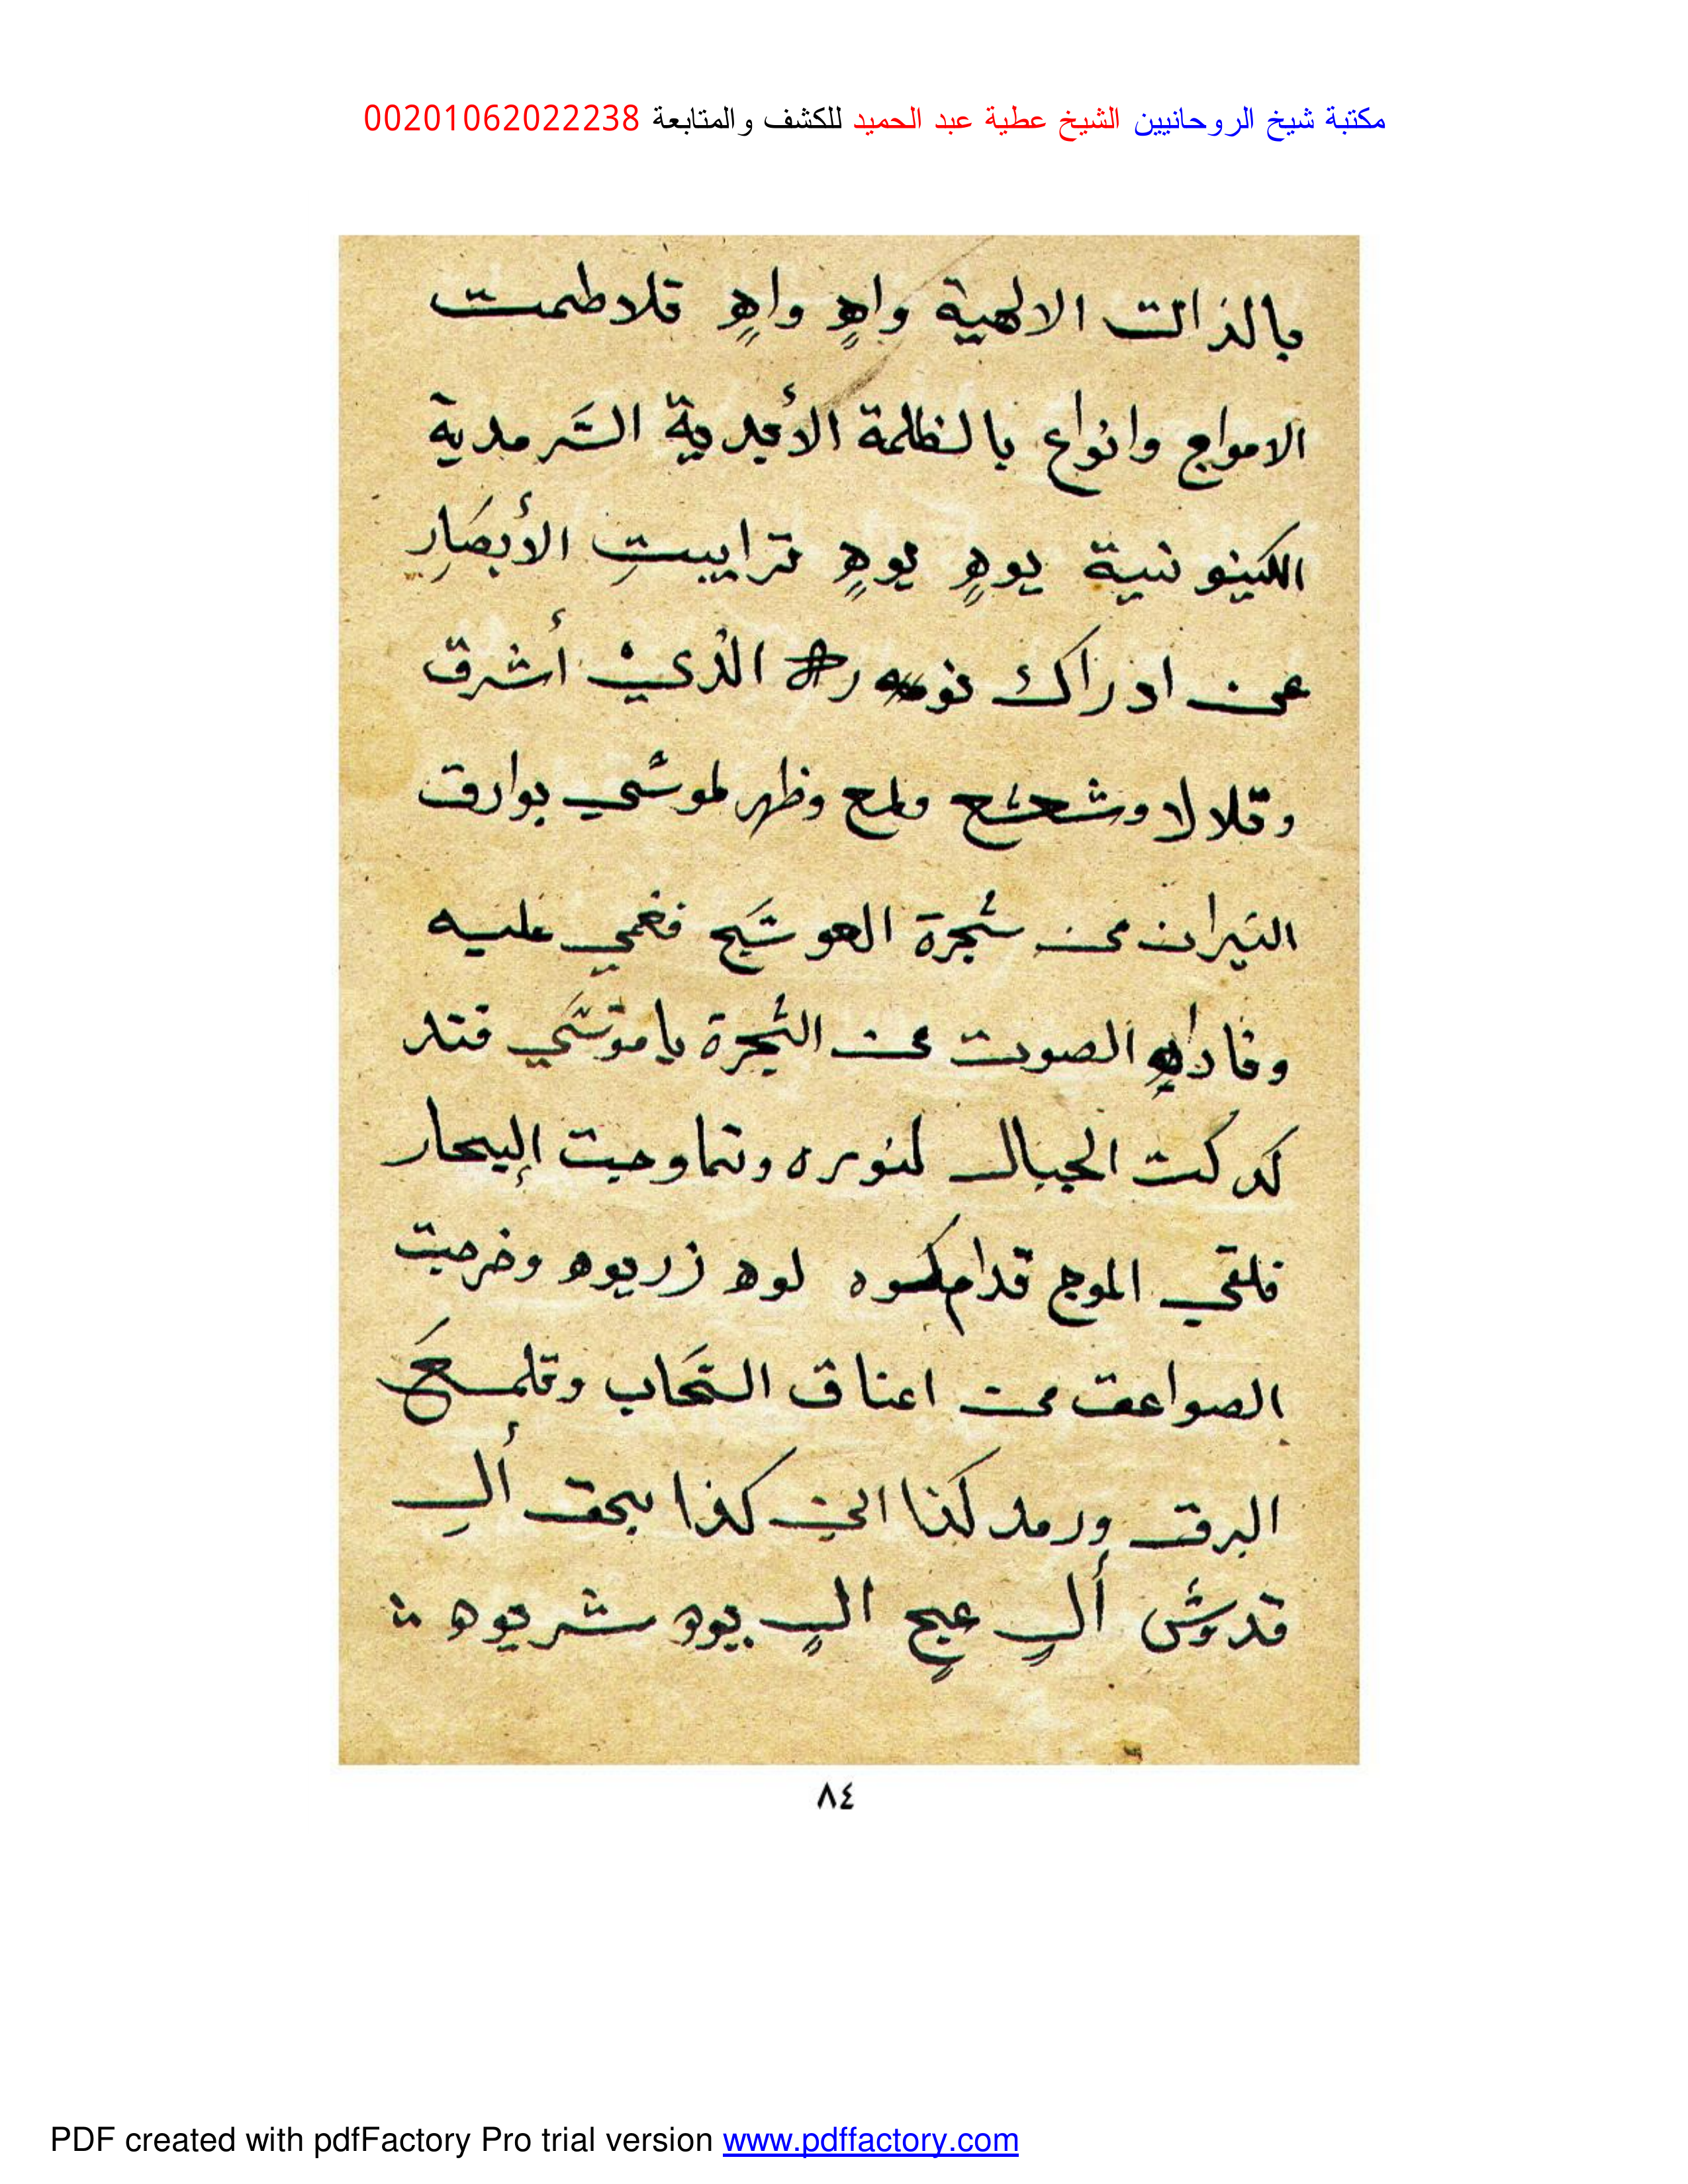 مكتبة شيخ الروحانيين الشيخ عطية عبد الحميد للكشف والمتابعة 00201062022238
بالذات الالهية واهٍ واهٍ قلاطمت
الامواج وانواع بالظلمة الأبدية السَّرمدية
الكينونية يوهٍ يوهٍ ترايبتِ الأبصَارِ
عن ادراك الذي أشرق
وقلالا وشعشع ولمع وظهر لموسَى بوارق
النيران من شجرة العوسَج فغمي عليه
وناداهٍ الصوت من الشجرة ياموسَى فتد
كدكت الجبال لنوره وتماوجت البحار
فلقي الموج قدام لوه زريوه وخرجت
الصواعق من اعناق السَحاب وقلمع
البرق ورمد كذا الى كذا بحق ألِ
قدوش ألٍ عجٍ الٍ يوه شريوه
٨٤
PDF created with pdfFactory Pro trial version www.pdffactory.com